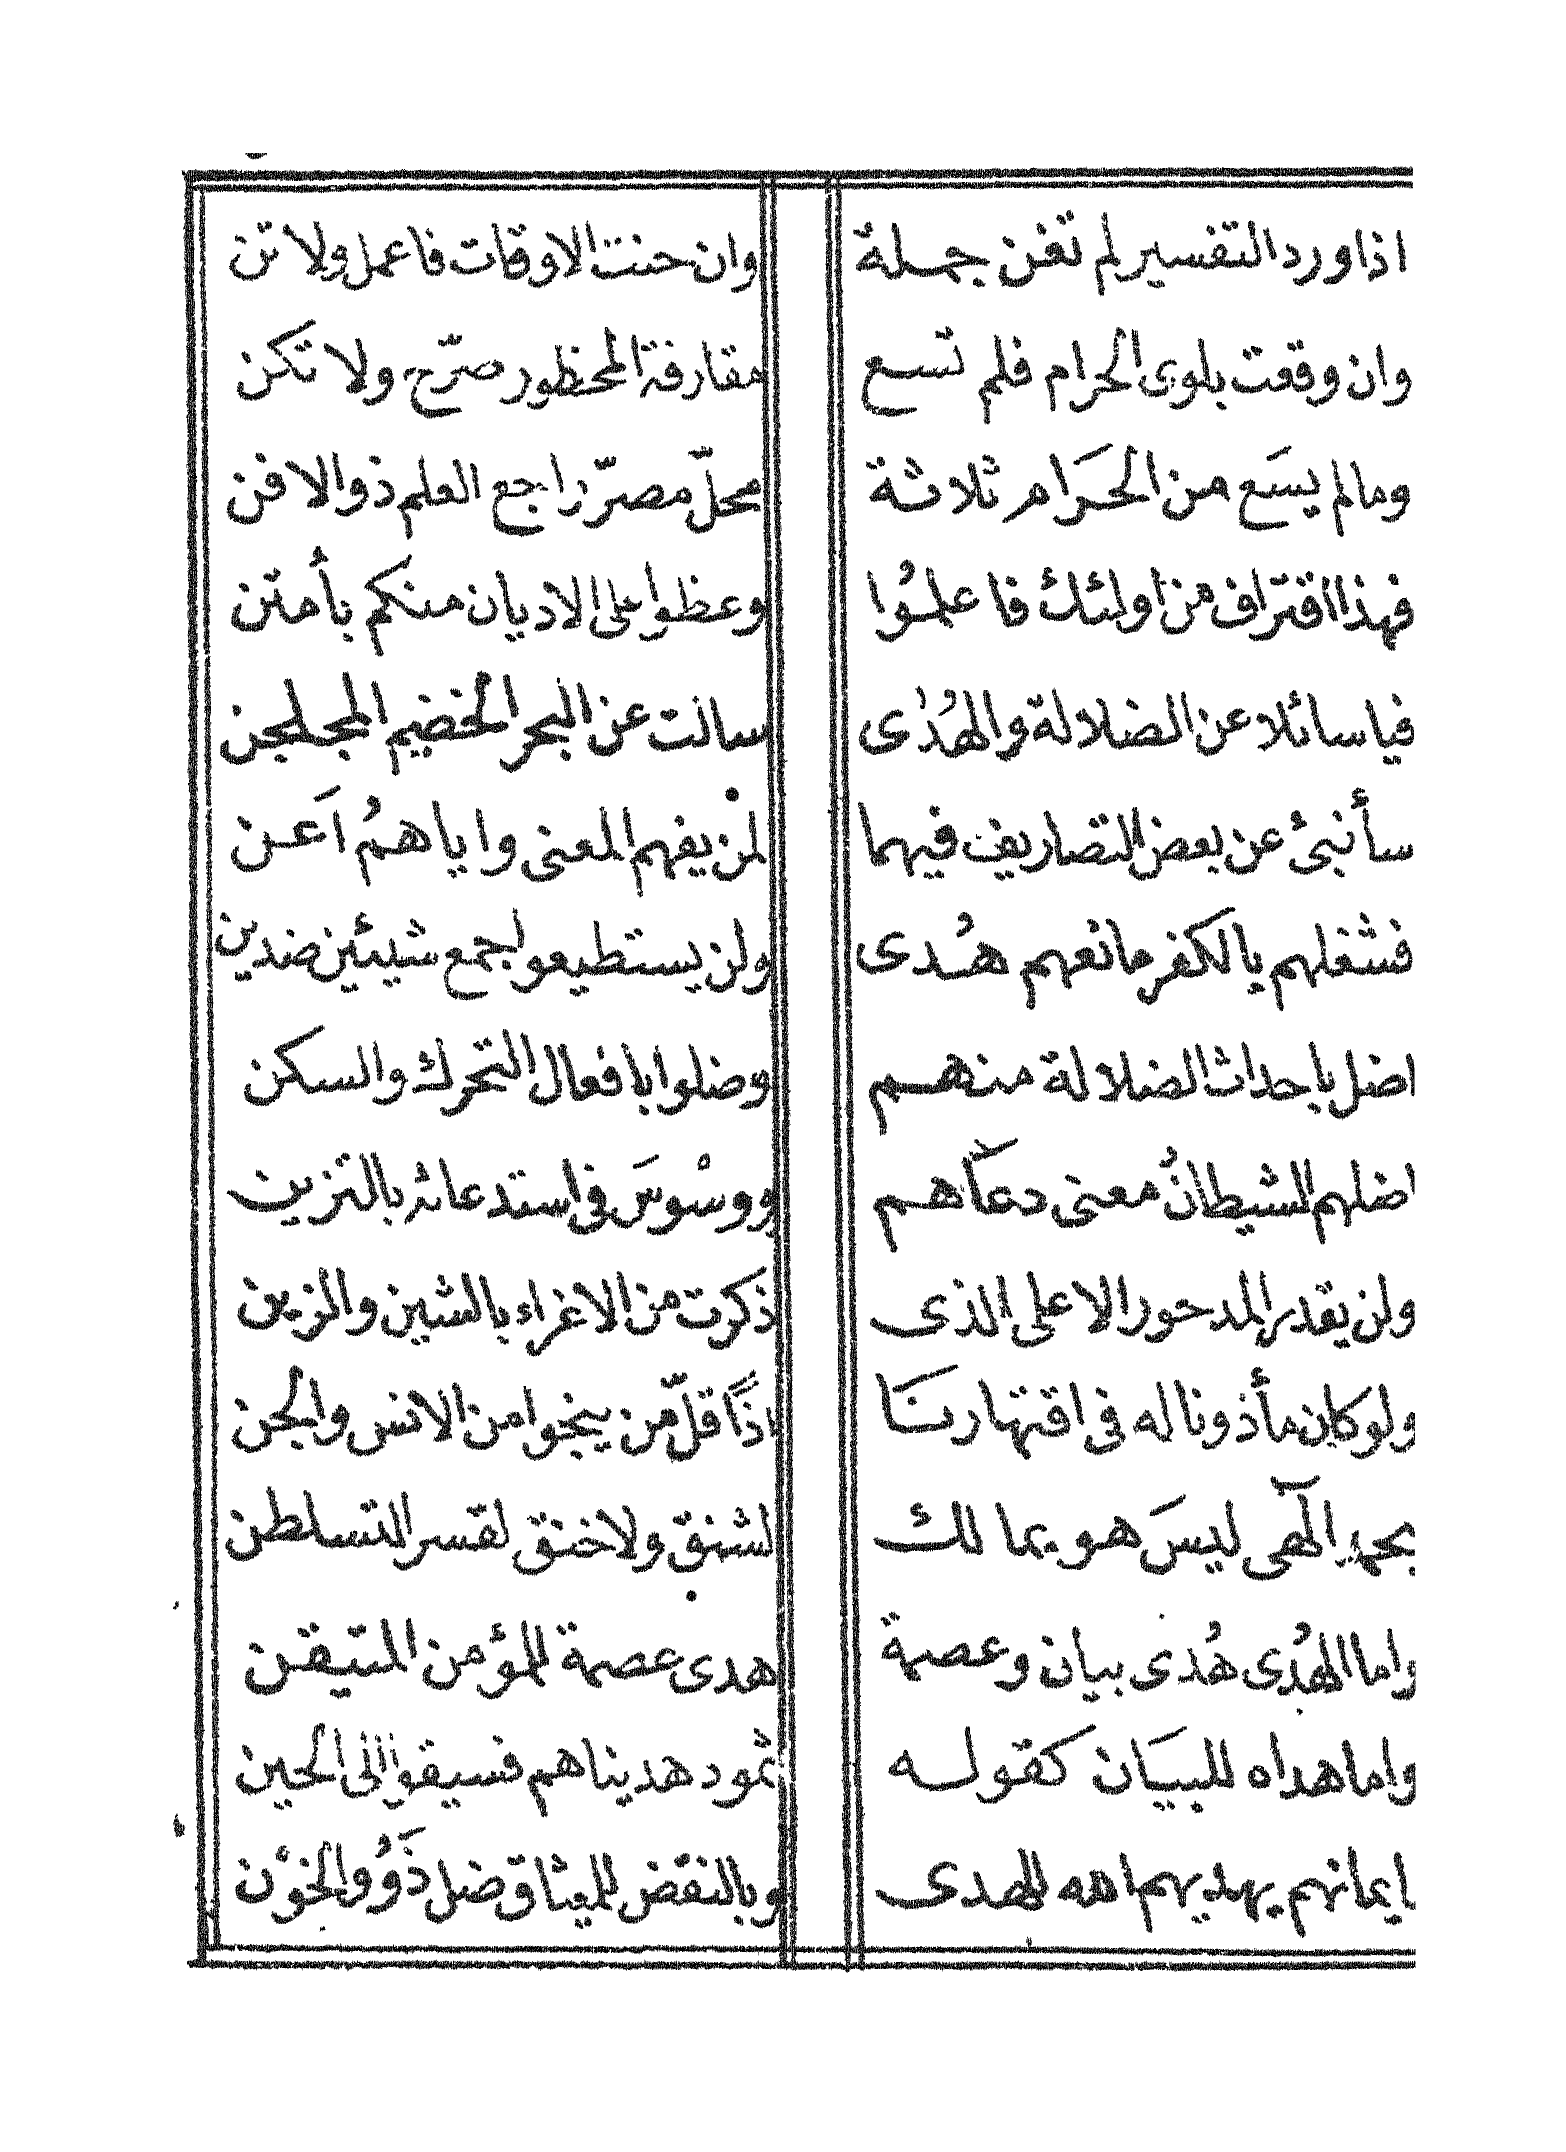 اذا ورد التفسير لم تغن جملة وان حنت الاوقات فاعمل ولا تن
وان وقعت بلوى الحرام فلم تسع مقارفة المحظور صرّح ولا تكن
وما لم يسَع من الحَرام ثلاثة محلّ مصرّ راجع العلم ذو الافن
فهذا اقتراف من اولئك فاعلمُوا وعظوا على الاديان منكم بأمتن
فيا سائلا عن الضلالة والهُدٰى سالت عن البحر الخضيم المجلجن
سأنبئ عن بعض التصاريف فيهما لمن يفهم المعنى واياهمُ اَعَن
فشغلهم بالكفر مانعهم هُدى ولن يستطيعو لجمع شيئين ضدين
اضل باحداث الضلالة منهم وضلوا بافعال التحرك والسكن
اضلهم الشيطانُ معنى دعَاهم ووسْوسَ في استدعائه بالتزين
ولن يقدر المدحور الا على الذى ذكرت من الاغراء بالشين والزين
ولو كان مأذونا له في اقتهارنَا اذًا قلّ من ينجوا من الانس والجن
بجهد الٓهى ليسَ هو بما لك لشنق ولا خنق لقسر التسلطن
واما الهُدى هُدى بيان وعصمة هدى عصمة للمؤمن المتيقن
واما هداه للبيَان كقوله ثمود هديناهم فسيقوا الى الحين
ايمانهم يهديهم اهه للهدى وبالنقض للميثاق ضل ذَوُو الخوْن